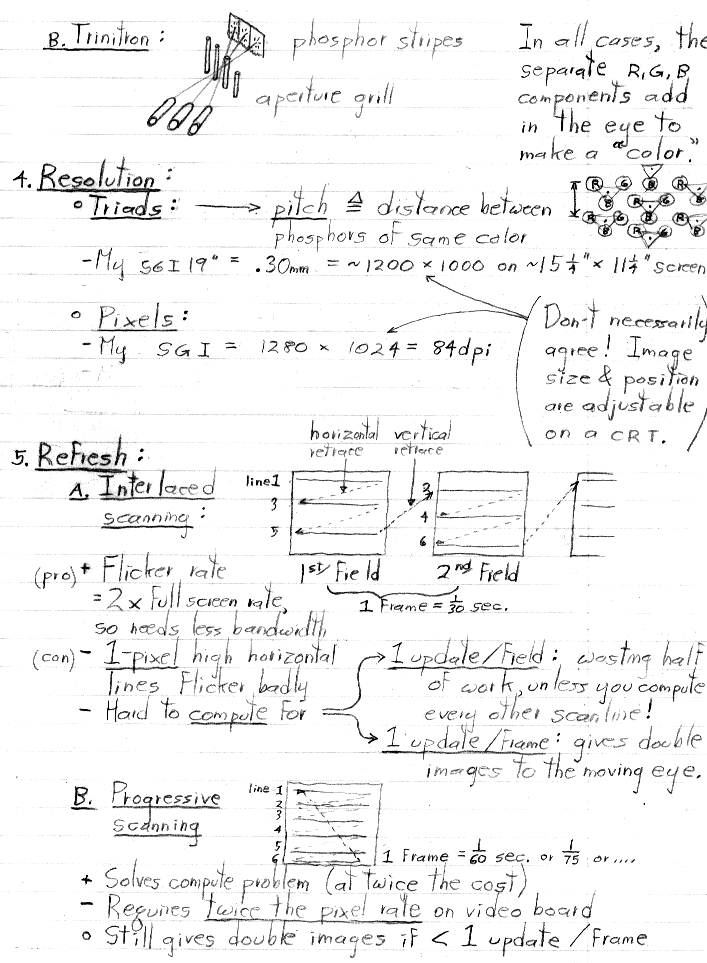 B. Trinitron:
phosphor stripes
aperture grill
In all cases, the
separate R,G,B
components add
in the eye to
make a "color."
4. Resolution:
o Triads: → pitch ≜ distance between
phosphors of same color
R G B R
B R G B
R G B R
B R G B
- My SGI 19" = .30mm = ~1200 × 1000 on ~15 1/4" × 11 1/4" screen
o Pixels:
- My SGI = 1280 × 1024 = 84dpi
Don't necessarily
agree! Image
size & position
are adjustable
on a CRT.
5. Refresh:
A. Interlaced
scanning:
horizontal retrace
vertical retrace
line 1
3
5
2
4
6
1st Field
2nd Field
1 Frame = 1/30 sec.
(pro) + Flicker rate
= 2 x full screen rate,
so needs less bandwidth
(con) - 1-pixel high horizontal
lines flicker badly
- Hard to compute for
1 update/Field: wasting half
of work, unless you compute
every other scanline!
1 update/Frame: gives double
images to the moving eye.
B. Progressive
scanning
line 1
2
3
4
5
6
1 Frame = 1/60 sec. or 1/75 or ....
+ Solves compute problem (at twice the cost)
- Requires twice the pixel rate on video board
o Still gives double images if < 1 update / Frame